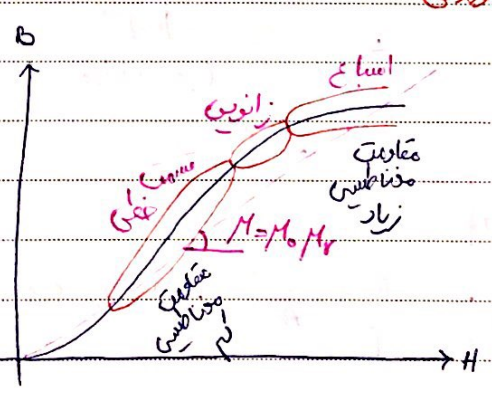 B
اشباع
زانویی
قسمت
خطی
مقاومت
مغناطیسی
زیاد
μ=μ₀μᵣ
مقاومت
مغناطیسی
کم
H